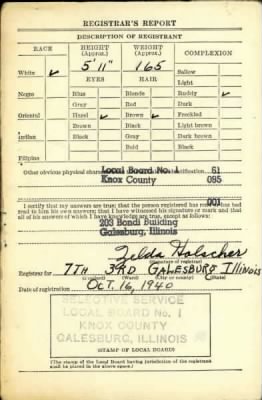 REGISTRAR'S REPORT
DESCRIPTION OF REGISTRANT
RACE HEIGHT (Approx.) WEIGHT (Approx.) COMPLEXION
White ✓ 5' 11" 165 Sallow
EYES HAIR Light
Negro Blue Blonde Ruddy ✓
Gray Red Dark
Oriental Hazel ✓ Brown ✓ Freckled
Brown Black Light brown
Indian Black Gray Dark brown
Bald Black
Filipino
Other obvious physical
Local Board No. 1 61
Knox County 095
001
I certify that my answers are true; that the person registered has read or has had
read to him his own answers; that I have witnessed his signature or mark and that
all of his answers of which I have knowledge are true, except as follows:
203 Bondi Building
Galesburg, Illinois
Zelda Holscher
(Signature of registrar)
Registrar for 7TH 3RD GALESBURG ILLINOIS
(Ward) (State)
Date of registration OCT. 16, 1940
SELECTIVE SERVICE
LOCAL BOARD No. 1
KNOX COUNTY
GALESBURG, ILLINOIS
STAMP OF LOCAL BOARD
(The stamp of the Local Board having jurisdiction of the registrant
shall be placed in the above space.)